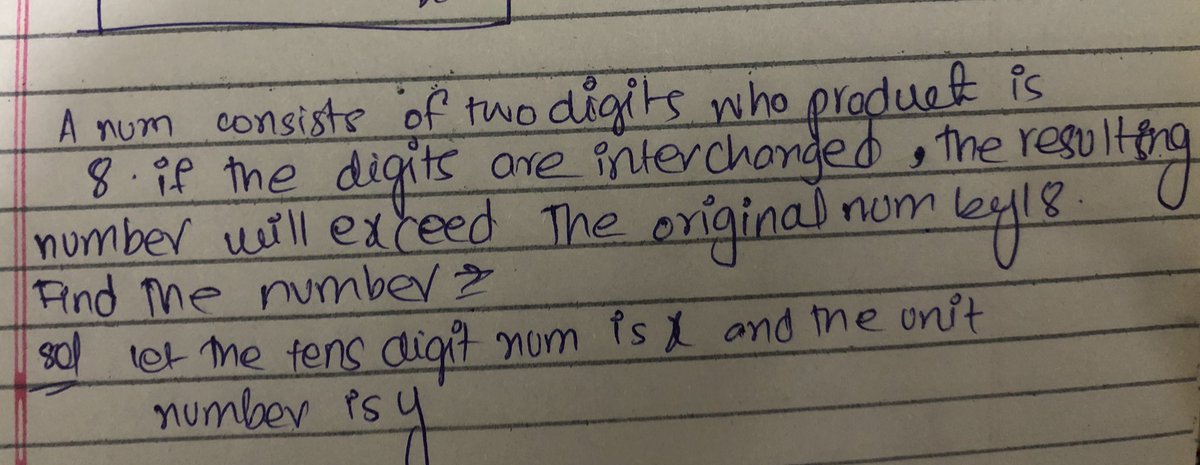 A num consists of two digits who product is
8. if the digits are interchanged, the resulting
number will exceed The original num by 18.
Find the number?
sol let the tens digit num is x and the unit
number is y